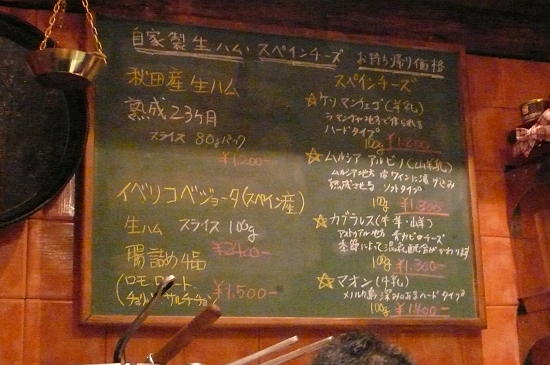 自家製生ハム・スペインチーズ お持ち帰り価格
秋田産生ハム
熟成23ヶ月
スライス 80gパック
¥1200-
イベリコベジョータ(スペイン産)
生ハム スライス 100g
¥2400-
腸詰め4品
(ロモ
チョリソ サルチチョン)
¥1,500-
スペインチーズ
☆ケソマンチェゴ(羊乳)
ラマンチャ地方で作られる
ハードタイプ
100g ¥1,200-
☆ムルシア アルビノ(山羊乳)
ムルシア地方 赤ワインに漬けこみ
ソフトタイプ
100g ¥1,300-
☆カブラレス(牛・羊・山羊)
アストゥリアス地方 青カビのチーズ
季節によって混乳配合がかわります
100g ¥1,300-
☆マオン(牛乳)
メノルカ島 深みのあるハードタイプ
100g ¥1400-